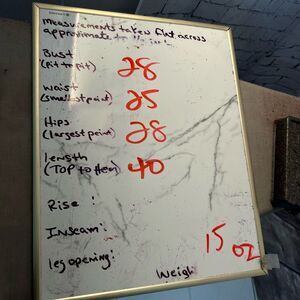 measurements taken flat across
approximate to the inch
Bust
(pit to pit) 28
waist
(smallest point) 25
Hips
(largest point) 28
length
(TOP to Hem) 40
Rise:
Inseam:
leg opening:
Weigh
15 oz